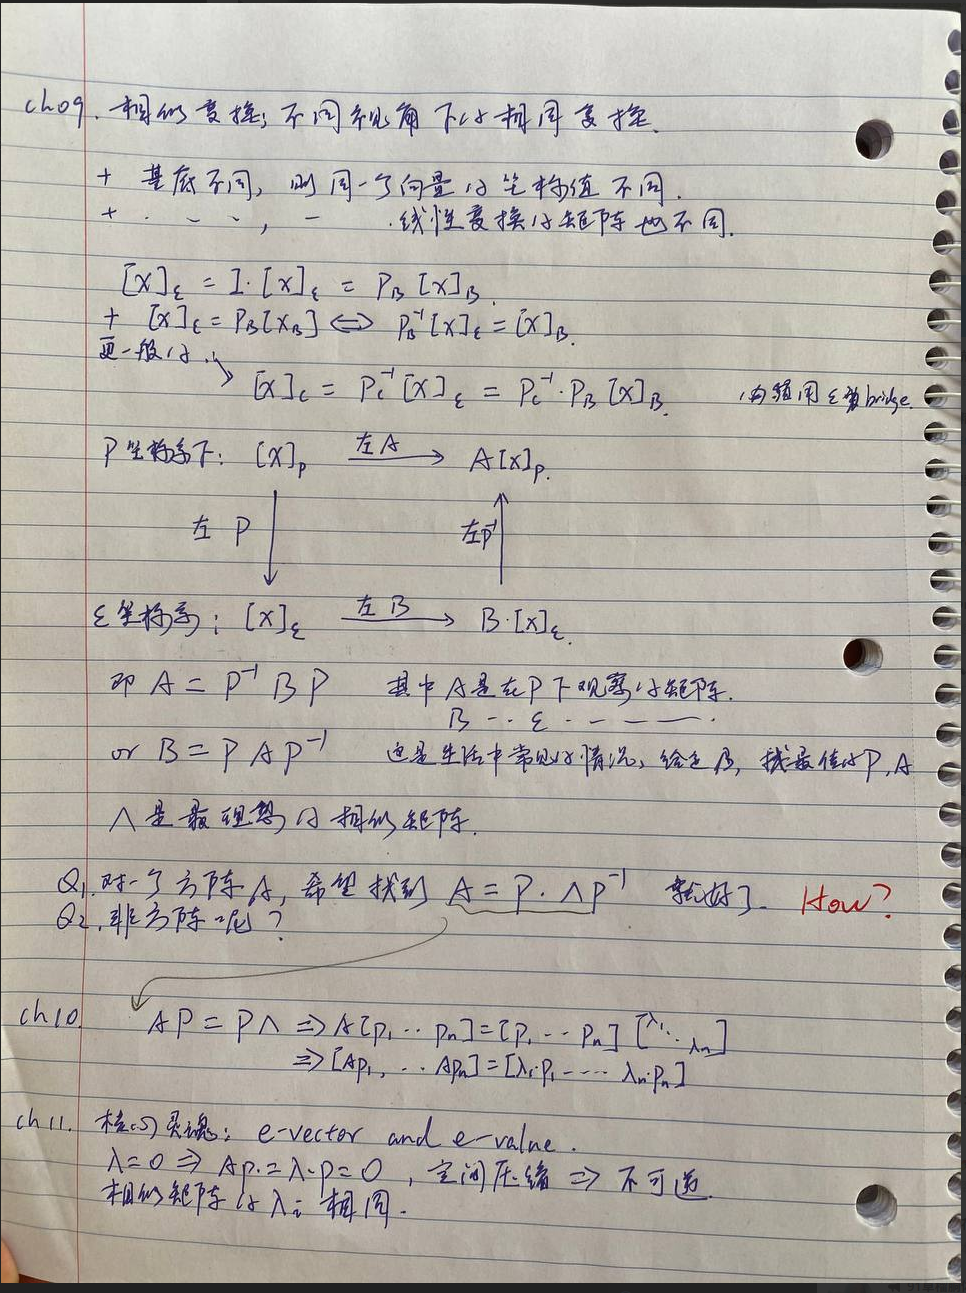 ch09. 相似变换: 不同视角下的相同变换.
+ 基底不同, 则同一个向量的坐标值不同.
+ · ~ ~ , — . 线性变换的矩阵也不同.
[x]_ε = I·[x]_ε = P_B [x]_B.
+ [x]_ε = P_B[x_B] ⇔ P_B⁻¹[x]_ε = [x]_B.
更一般的..
[x]_c = P_c⁻¹[x]_ε = P_c⁻¹·P_B [x]_B. 用ε做bridge.
P坐标系下: [x]_P 左A → A[x]_P.
左 P 左P⁻¹
ε坐标系: [x]_ε 左B → B·[x]_ε.
即 A = P⁻¹ B P 其中A是在P下观察的矩阵.
B -- ε - - - —.
or B = P A P⁻¹ 这是生活中常见的情况, 给定B, 找最佳的P, A
Λ是最理想的相似矩阵.
Q1. 对一个方阵A, 希望找到 A = P·ΛP⁻¹ 就好了. How?
Q2. 非方阵呢?
ch10. AP = PΛ ⇒ A[p₁ ·· pₙ] = [p₁ -- pₙ] [λ₁ ·. λₙ]
⇒ [Ap₁, ·· Apₙ] = [λ₁·p₁ ---- λₙ·pₙ]
ch11. 核心灵魂: e-vector and e-value.
λ=0 ⇒ Ap.=λ·p=0, 空间压缩 ⇒ 不可逆.
相似矩阵的λᵢ相同.